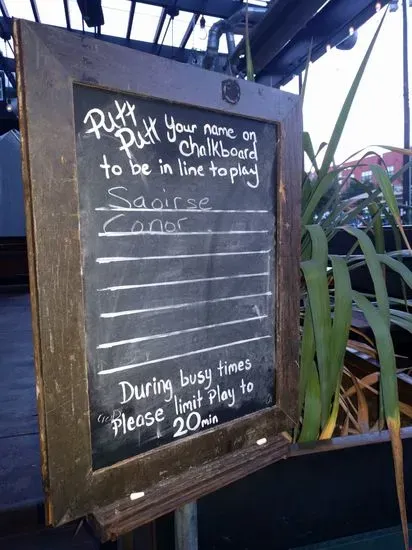 Putt
Putt your name on
Chalkboard
to be in line to play
Saoirse
Conor
During busy times
Please limit Play to
20 min